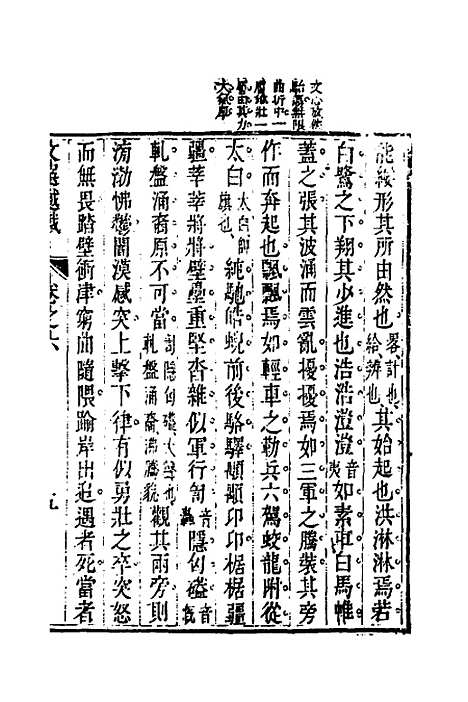 文心放然
曲折中一
能縷形其所由然也畧計也給辨也其始起也洪淋淋焉若
白鷺之下翔其少進也浩浩澄澄音夷如素車白馬帷
蓋之張其波涌而雲亂擾擾焉如三軍之騰裝其旁
作而奔起也飄飄焉如輕車之勒兵六駕蛟龍附從
太白太白帥旗也純馳皓蜺前後駱驛顒顒卬卬椐椐彊
彊莘莘將將壁壘重堅沓雜似軍行訇音轟隱匈磕音
軋盤涌裔原不可當訇隱匈磕大聲也軋盤涌裔沸騰貌觀其兩旁則
滂渤怫鬱闇漠感突上擊下律有似勇壯之卒突怒
而無畏蹈壁衝津窮曲隨隈踰岸出追遇者死當者
卷之六
五